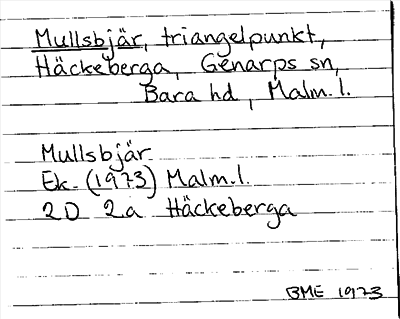 Mullsbjär, triangelpunkt,
Häckeberga, Genarps sn,
Bara hd, Malm. l.
Mullsbjär
Ek. (1973) Malm. l.
2D 2a Häckeberga
BME 1973